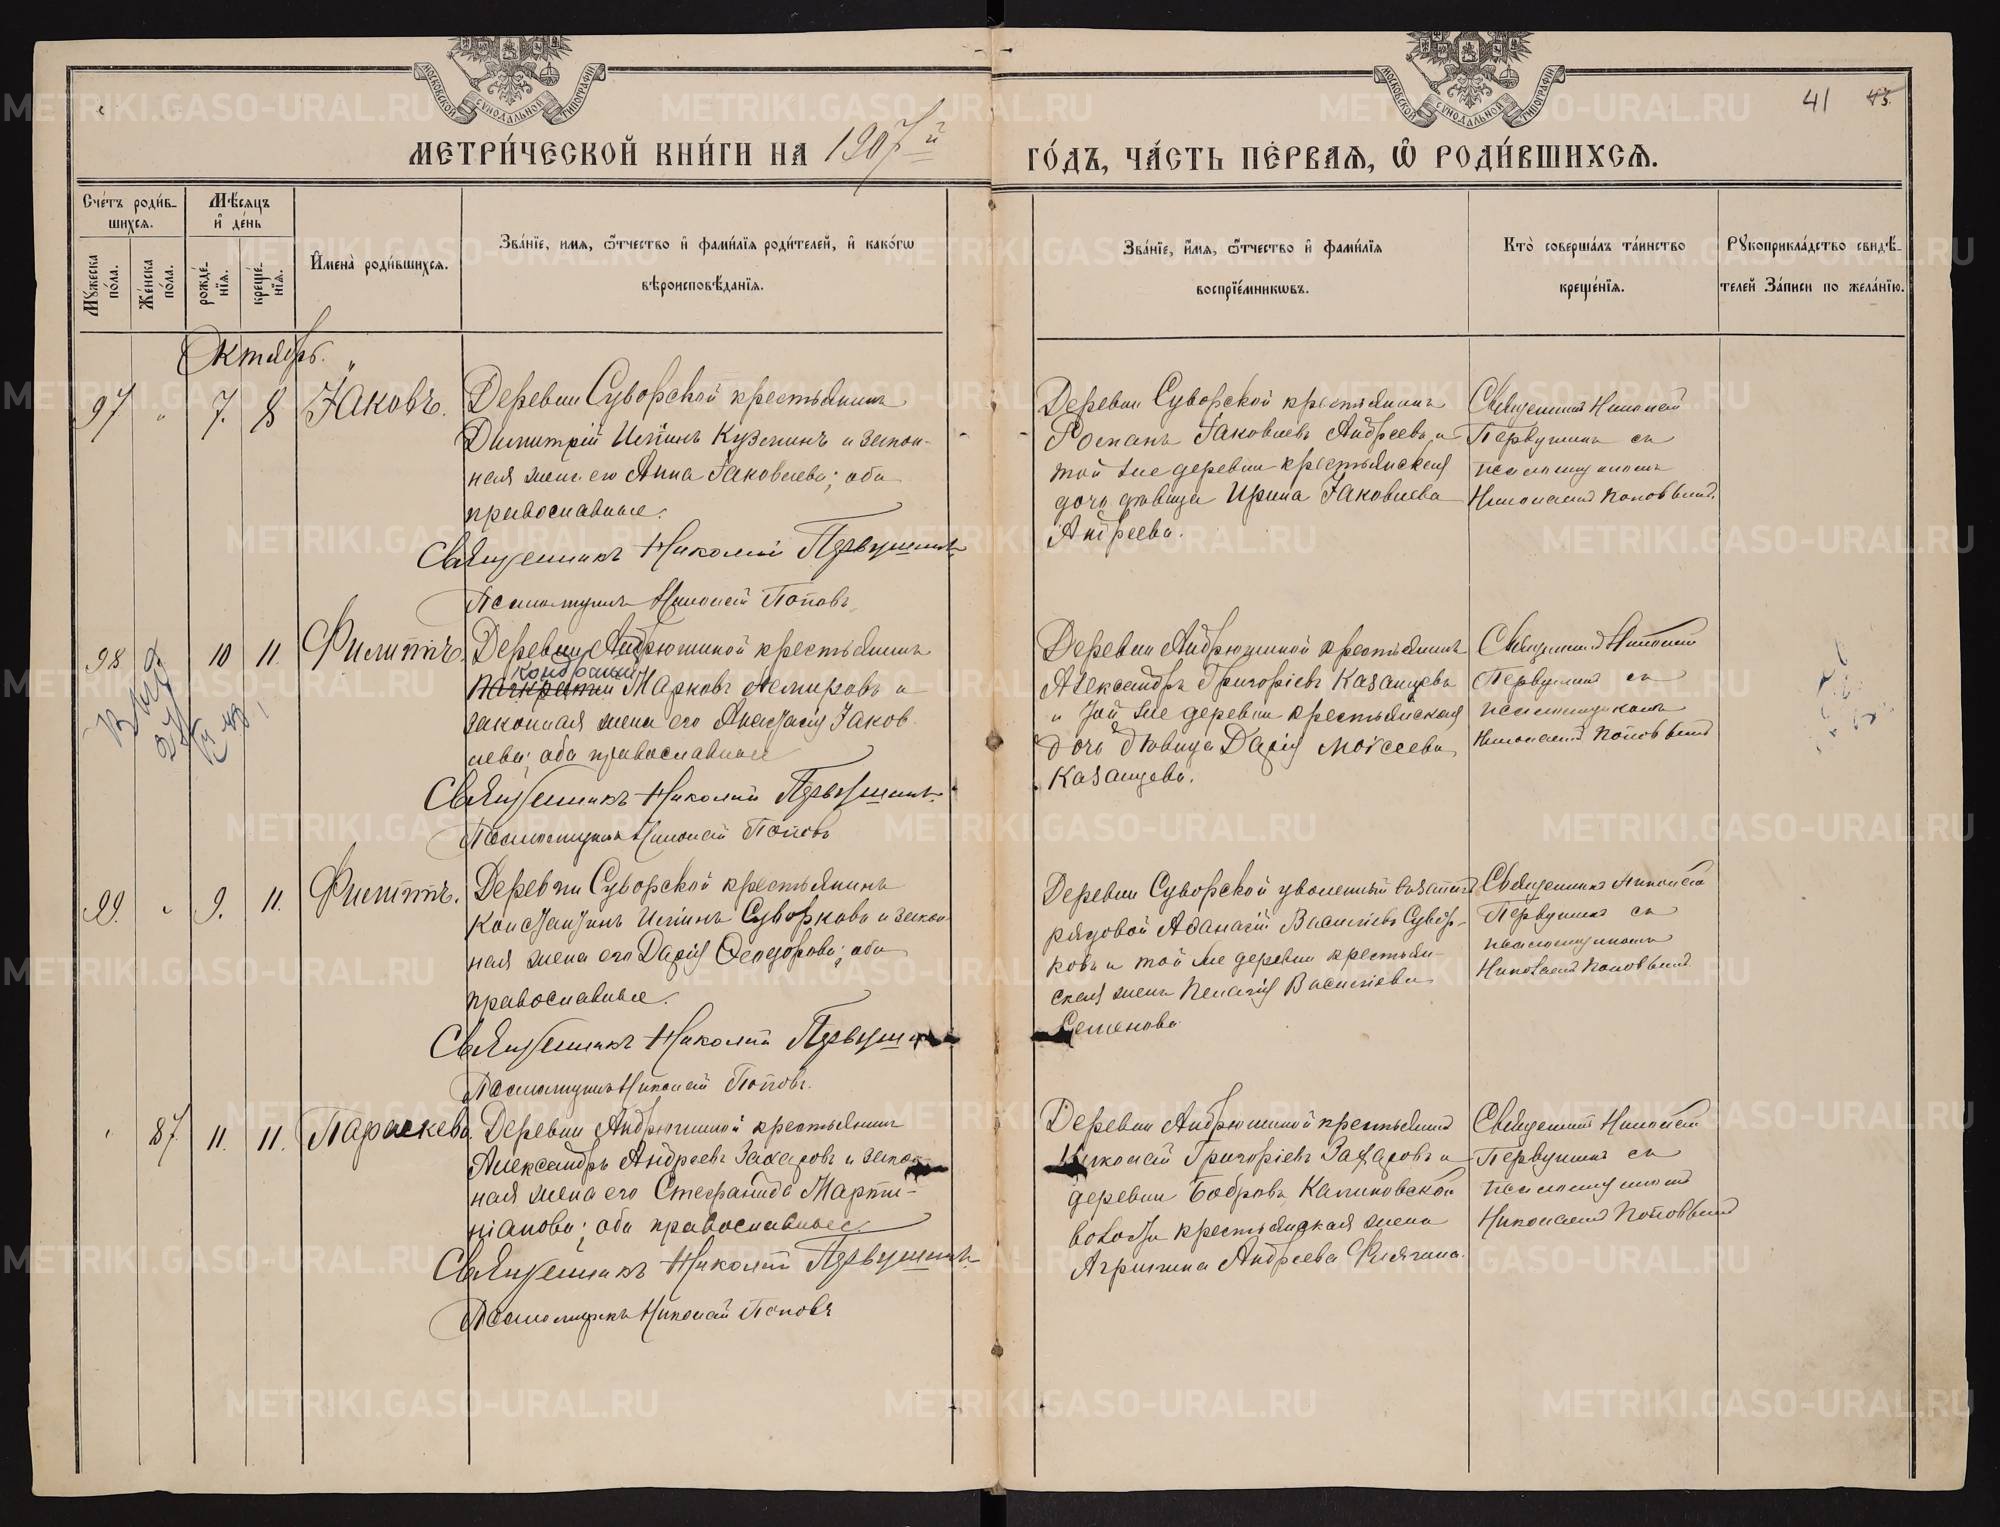 МОСКОВСКОЙ СѴНОДАЛЬНОЙ ТИПОГРАФІИ
МОСКОВСКОЙ СѴНОДАЛЬНОЙ ТИПОГРАФІИ
41 43.
МЕТРИ́ЧЕСКОЙ КНИ́ГИ НА 1907й ГО́ДЪ, ЧА́СТЬ ПЕ́РВАѦ, Ѽ РОДИ́ВШИХСѦ.
Сче́тъ роди́вшихсѧ.
Мѣ́сѧцъ и де́нь
Мꙋ́жеска по́ла.
Же́нска по́ла.
рожде́нїѧ.
креще́нїѧ.
И҆мена̀ роди́вшихсѧ.
Зва́нїе, имѧ, ѻ҆́тчество и҆ фами́лїѧ роди́телей, и҆ како́гѡ вѣроисповѣ́данїѧ.
Зва́нїе, и҆́мѧ, ѻ҆́тчество и҆ фами́лїѧ воспрїе́мникѡвъ.
Кто̀ соверша́лъ та́инство креще́нїѧ.
Рꙋкоприкла́дство свидѣ́телей За́писи по жела́нїю.
Октябрь.
97 " 7. 8 Іаковъ.
Деревни Суворской крестьянинъ
Димитрій Иліинъ Кузминъ и закон-
ная жена его Анна Іаковлева; оба
православные.
Священникъ Николай Первушинъ
Псаломщикъ Николай Поповъ
Деревни Суворской крестьянинъ
Романъ Іаковлевъ Андреевъ и
той же деревни крестьянская
дочь девица Ирина Іаковлева
Андреева.
Священникъ Николай
Первушинъ съ
псаломщикомъ
Николаемъ Поповымъ.
98 10 11. Филиппъ.
Деревни Андрюшиной крестьянинъ
Кондратій
Панкратій Марковъ Немировъ и
законная жена его Анастасія Іаков
лева; оба православные
Священникъ Николай Первушинъ
Псаломщикъ Николай Поповъ
Деревни Андрюшиной крестьянинъ
Александръ Григоріевъ Казанцевъ
и той же деревни крестьянская
дочь девица Дарія Моисеева
Казанцева.
Священникъ Николай
Первушинъ съ
псаломщикомъ
Николаемъ Поповымъ
99. " 9. 11. Филиппъ.
Деревни Суворской крестьянинъ
Константинъ Иліинъ Суворковъ и закон
ная жена его Дарія Ѳеодорова; оба
православные.
Священникъ Николай Первушинъ
Псаломщикъ Николай Поповъ.
Деревни Суворской уволенный въ запасъ
рядовой Аѳанасій Василіевъ Сувор-
ковъ и той же деревни крестьян-
ская жена Пелагія Василіева
Семенова
Священникъ Николай
Первушинъ съ
псаломщикомъ
Николаемъ Поповымъ
87 11. 11. Параскева.
Деревни Андрюшиной крестьянинъ
Александръ Андреевъ Захаровъ и закон
ная жена его Стефанида Марти-
ніанова; оба православные
Священникъ Николай Первушинъ
Псаломщикъ Николай Поповъ
Деревни Андрюшиной крестьянинъ
Николай Григоріевъ Захаровъ и
деревни Боброва, Калиновской
волости крестьянская жена
Агрипина Андреева
Священникъ Николай
Первушинъ съ
псаломщикомъ
Николаемъ Поповымъ
METRIKI.GASO-URAL.RU